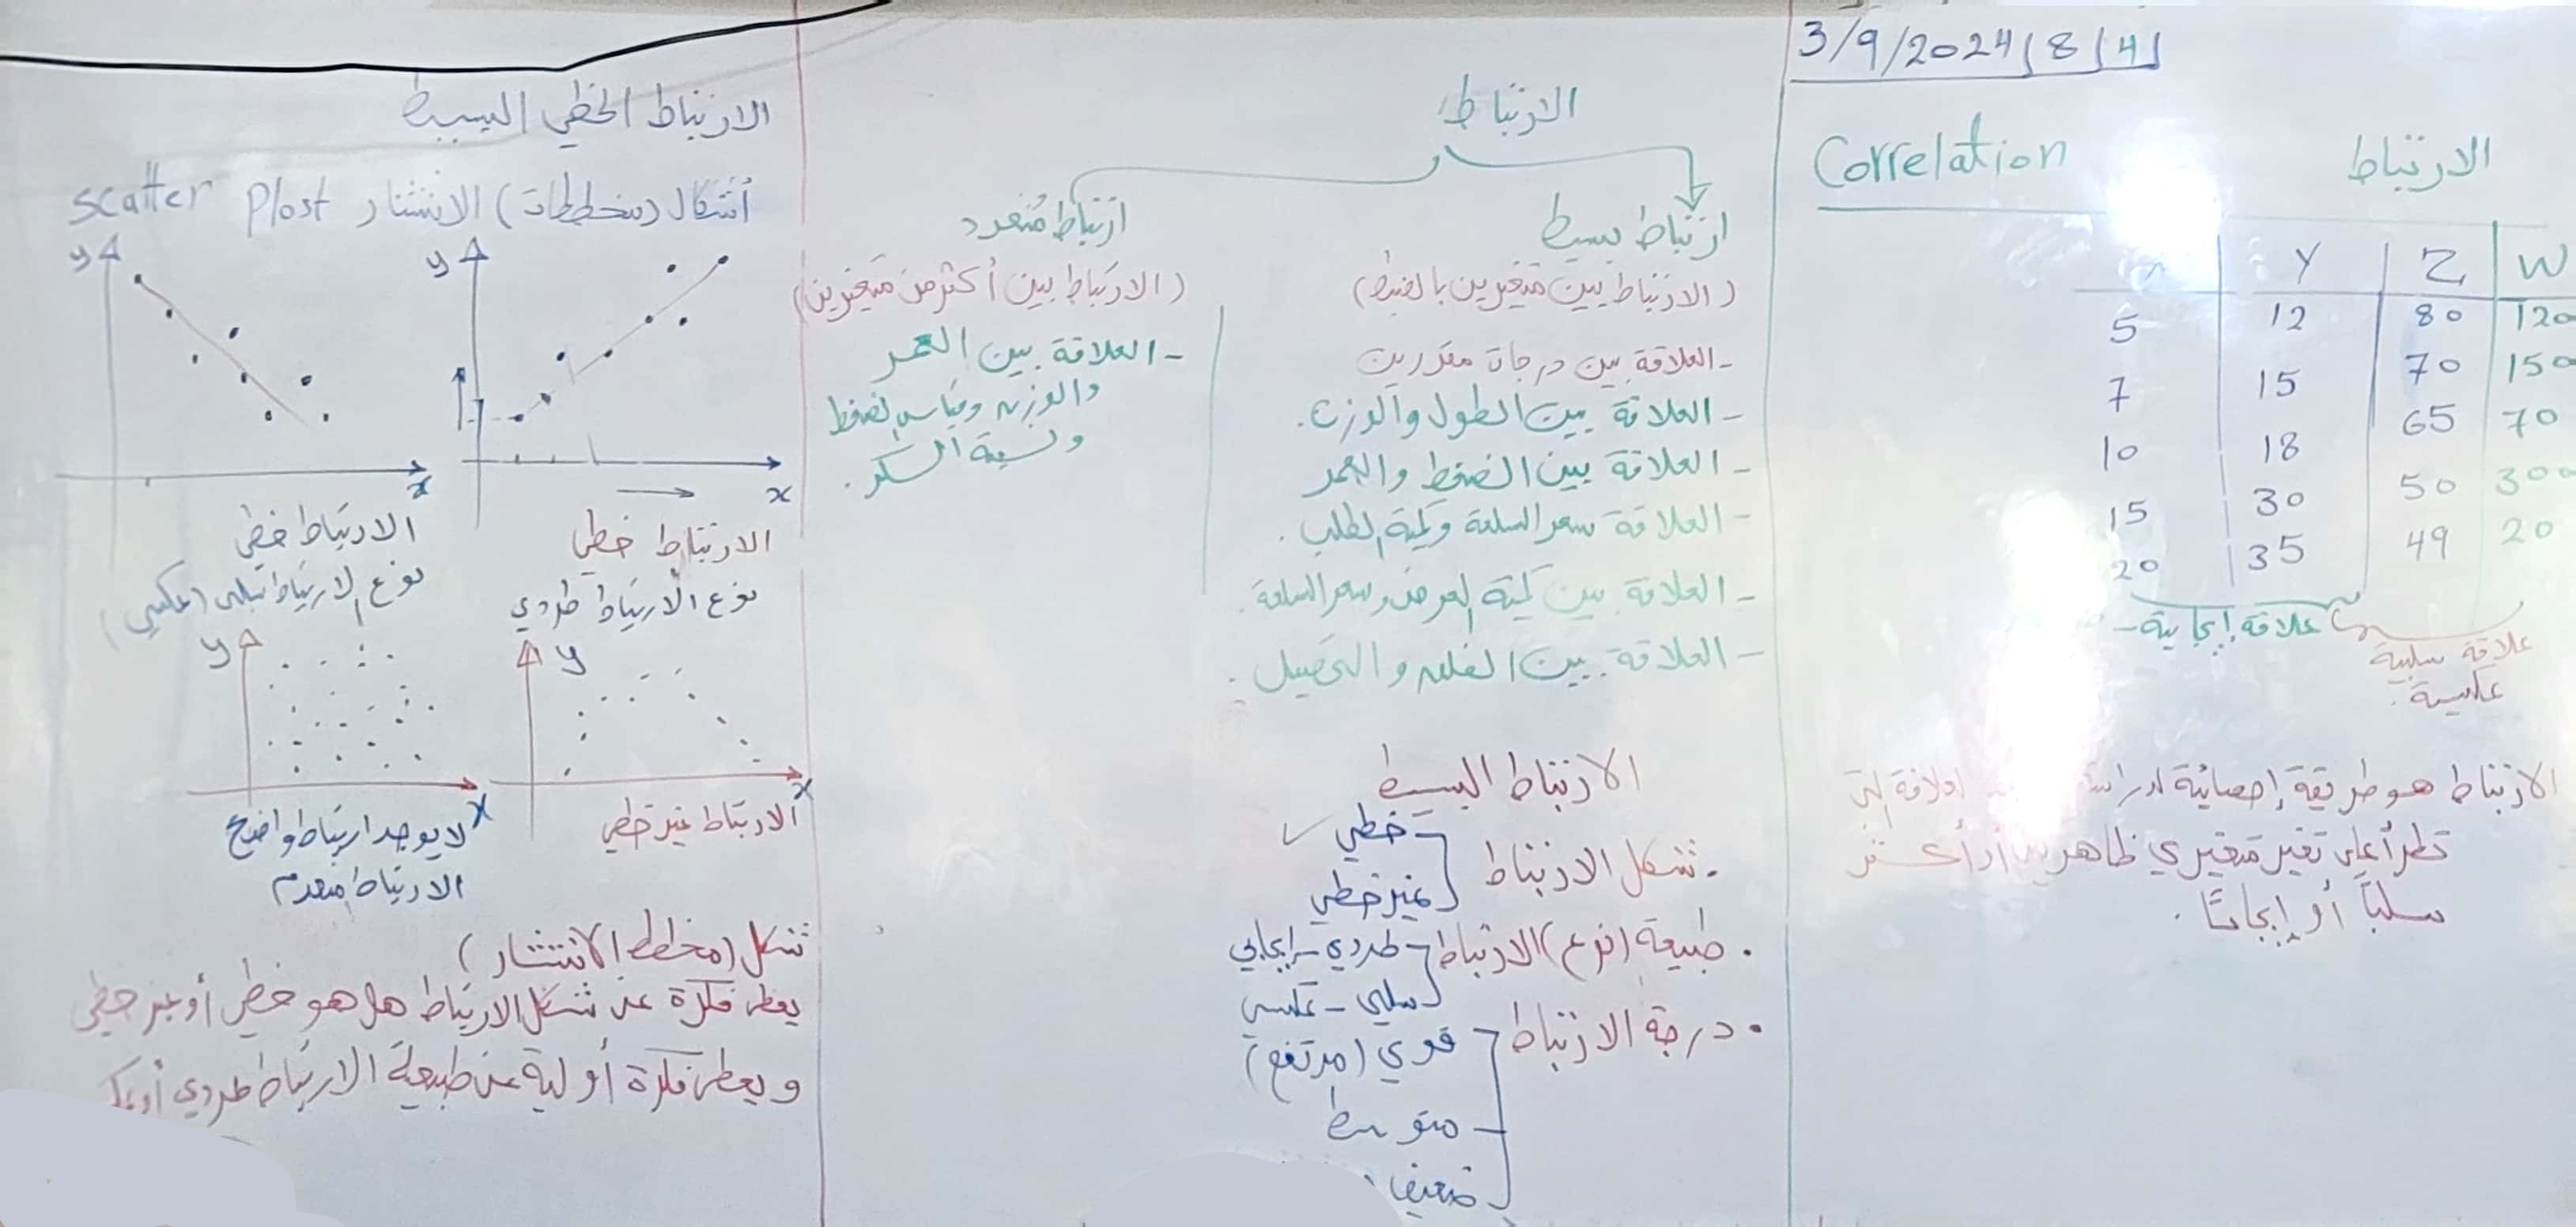 3/9/2024 | 8 | 4 |
الارتباط Correlation
Y Z W
5 12 80 120
7 15 70 150
10 18 65 70
15 30 50 300
20 35 49 20
علاقة إيجابية
علاقة سلبية
عكسية.
الارتباط هو طريقة إحصائية لدراسة العلاقة التي
تطرأ على تغير متغيري ظاهرتين أو أكثر
سلباً أو إيجاباً.
الارتباط
ارتباط بسيط
(الارتباط بين متغيرين بالضبط)
- العلاقة بين درجات مقررين
- العلاقة بين الطول والوزن.
- العلاقة بين الضغط والعمر
- العلاقة سعر السلعة وكمية الطلب.
- العلاقة بين كمية العرض وسعر السلعة.
- العلاقة بين والتحصيل.
ارتباط متعدد
(الارتباط بين أكثر من متغيرين)
- العلاقة بين العمر
والوزن وقياس الضغط
ونسبة السكر.
الارتباط البسيط
. شكل الارتباط
خطي ✓
غير خطي
. طبيعة (نوع) الارتباط
طردي - إيجابي
سلبي - عكسي
. درجة الارتباط
قوي (مرتفع)
متوسط
ضعيف
الارتباط الخطي البسيط
أشكال (مخططات) الانتشار scatter Plost
y x
الارتباط خطي
نوع الارتباط طردي
y x
الارتباط خطي
نوع الارتباط سلبي (عكسي)
y x
الارتباط غير خطي
y x
لا يوجد ارتباط واضح
الارتباط منعدم
شكل (مخطط الانتشار)
يعطي فكرة عن شكل الارتباط هل هو خطي أو غير خطي
ويعطي فكرة أولية عن طبيعة الارتباط طردي